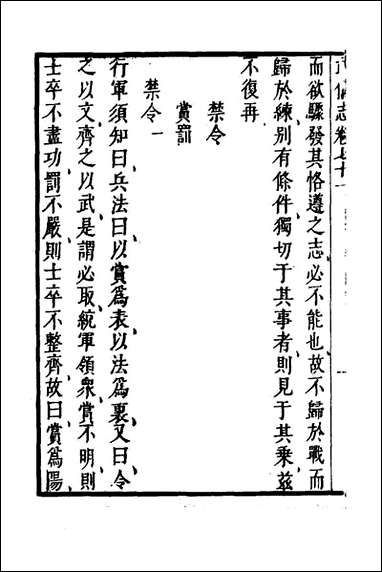 武備志卷七十一
而欲驟發其恪遵之志必不能也故不歸於戰而
歸於練别有條件獨切于其事者則見于其乗兹
不復再
禁令
賞罰
禁令一
行軍須知曰兵法曰以賞爲表以法爲裏又曰令
之以文齊之以武是謂必取統軍領衆賞不明則
士卒不盡功罰不嚴則士卒不整齊故曰賞爲陽